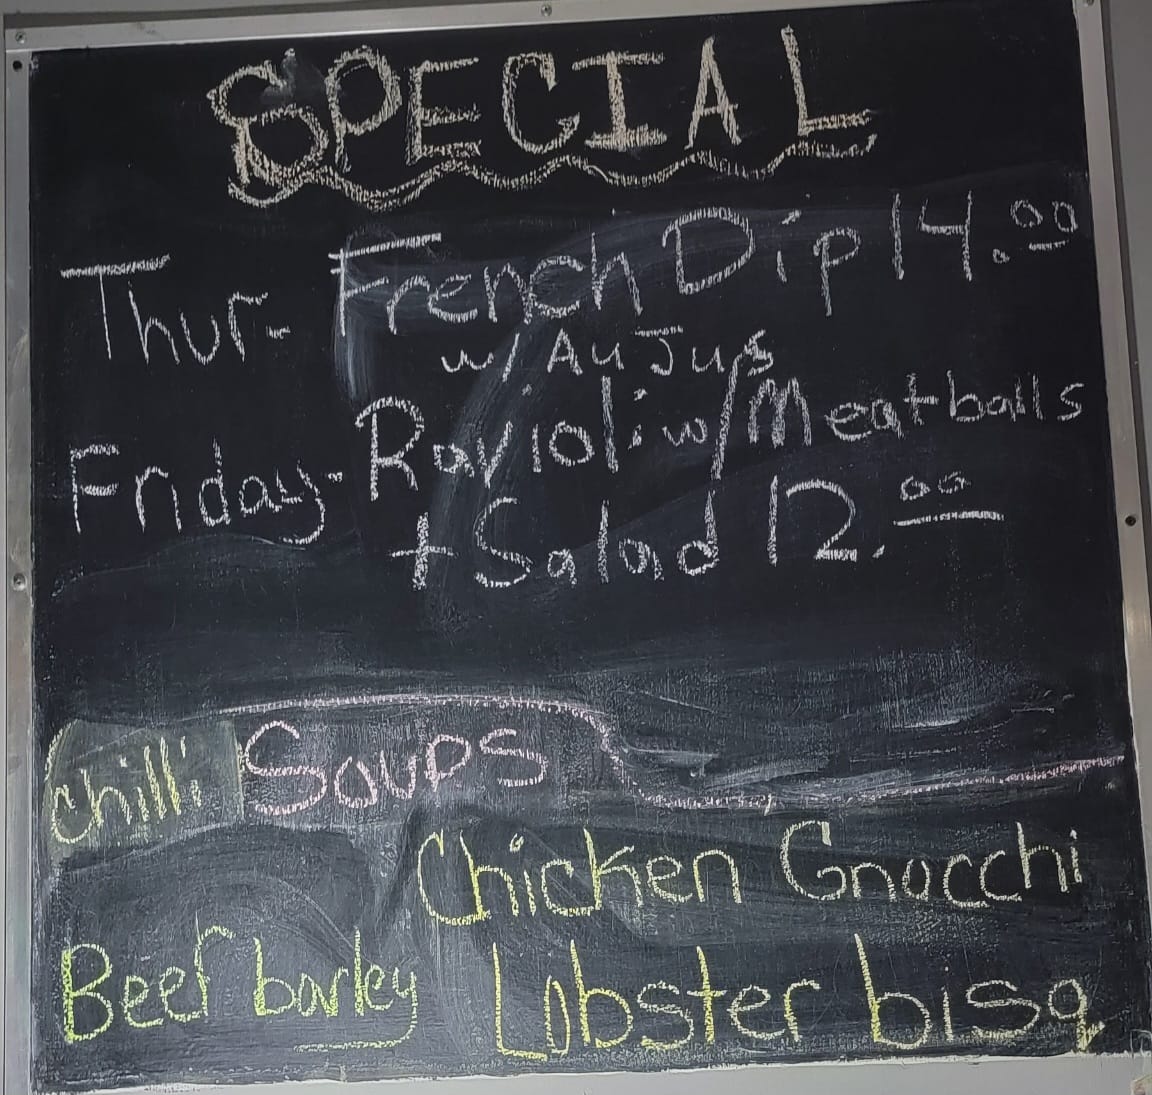 SPECIAL
Thur- French Dip 14.00
w/ Au Jus
Friday- Ravioli w/ Meatballs
+ Salad 12.00
Chilli Soups
Chicken Gnocchi
Beef barley Lobster bisq